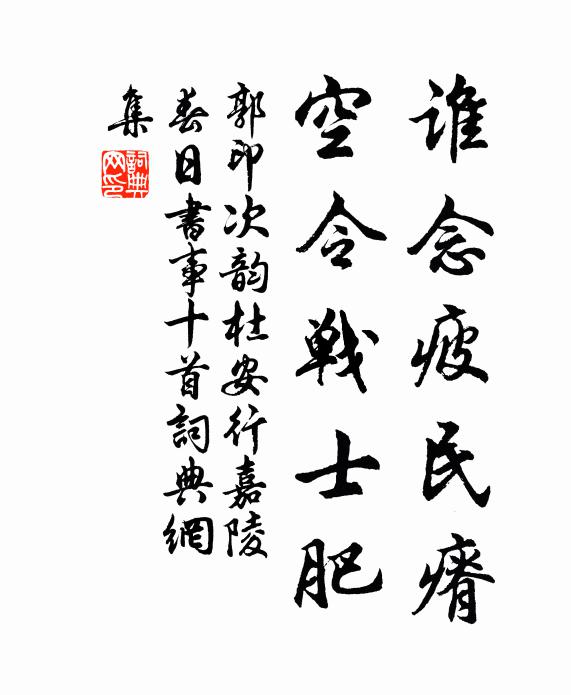 谁念疲民瘠
空令戰士肥
郭印次韵杜安行嘉陵
春日書事十首詞典網
集
詞典网印